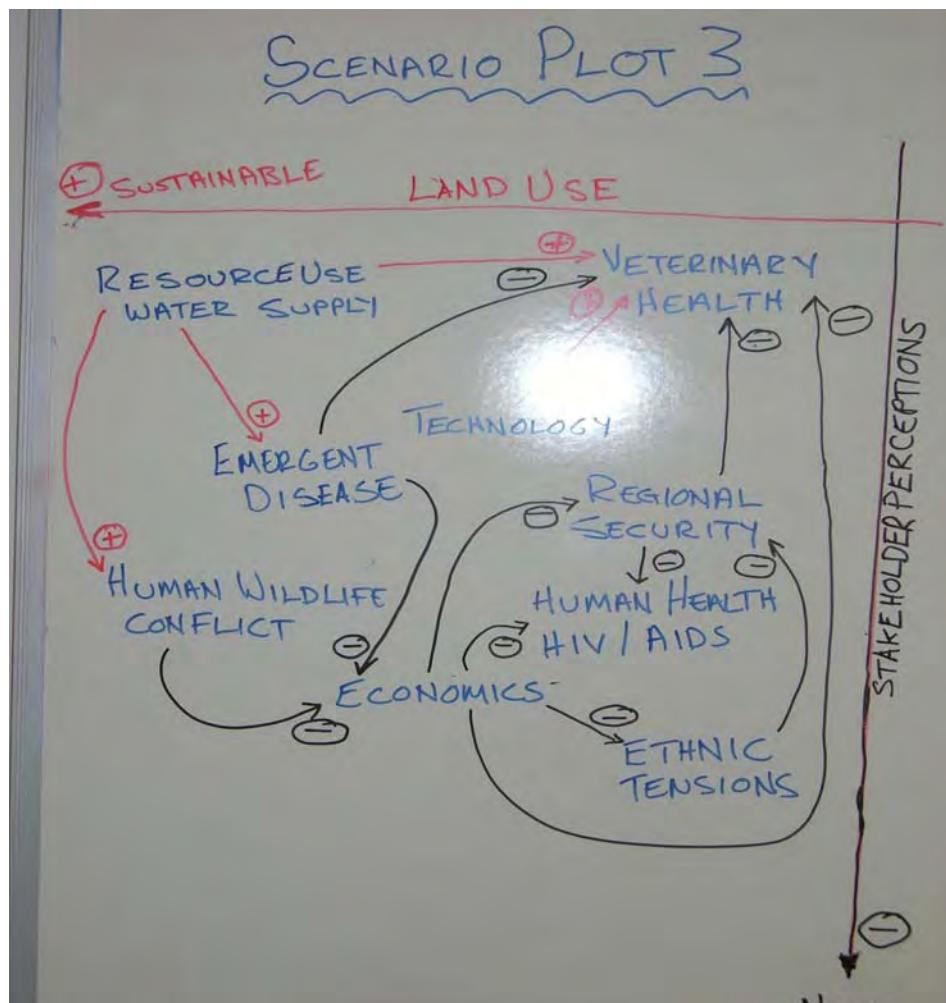 SCENARIO PLOT 3
+ SUSTAINABLE LAND USE
RESOURCE USE
WATER SUPPLY
+
−
VETERINARY
HEALTH
+
−
−
STAKEHOLDER PERCEPTIONS
+
TECHNOLOGY
EMERGENT
DISEASE
REGIONAL
SECURITY
−
+
−
−
HUMAN WILDLIFE
CONFLICT
HUMAN HEALTH
HIV / AIDS
−
−
ECONOMICS
−
−
ETHNIC
TENSIONS
−